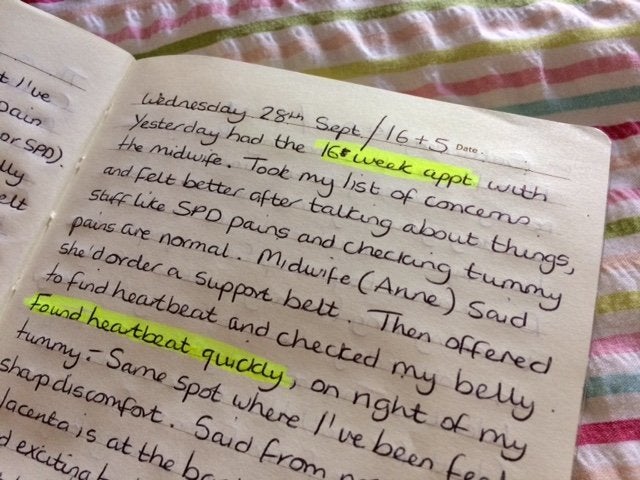 t I've
pain
or SPD).
lly
elt
Date.
Wednesday 28th Sept. / 16+5
Yesterday had the 16 week appt with
the midwife. Took my list of concerns
and felt better after talking about things,
stuff like SPD pains and checking tummy
pains are normal. Midwife (Anne) said
she'd order a support belt. Then offered
to find heartbeat and checked my belly.
Found heartbeat quickly, on right of my
tummy - Same spot where I've been feel
sharp discomfort. Said from
lacenta is at the ba
d exciting